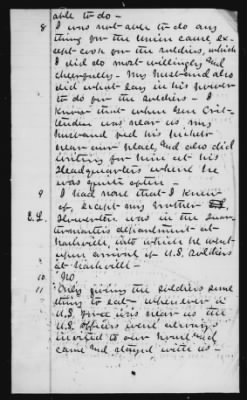 able to do -
8 I was not able to do any
thing for the Union cause, ex-
cept cook for the soldiers, which
I did do most willingly and
cheerfully - My husband also
did what lay in his power
to do for the soldiers - I
know that when Gen Crit-
tenden was near us my
husband fed his pickets
near our place, and also did
writing for him at his
Headquarters where he
was quite often -
9 I had none that I knew
of, except my brother
E. L. was in the quar-
termasters department at
Nashville, into which he went
upon arrival of U.S. soldiers
at Nashville -
10 No
11 Only giving the soldiers some
thing to eat - whenever a
U.S. force was near us the
U.S. officers were always
invited to our house and
came and stayed with us -